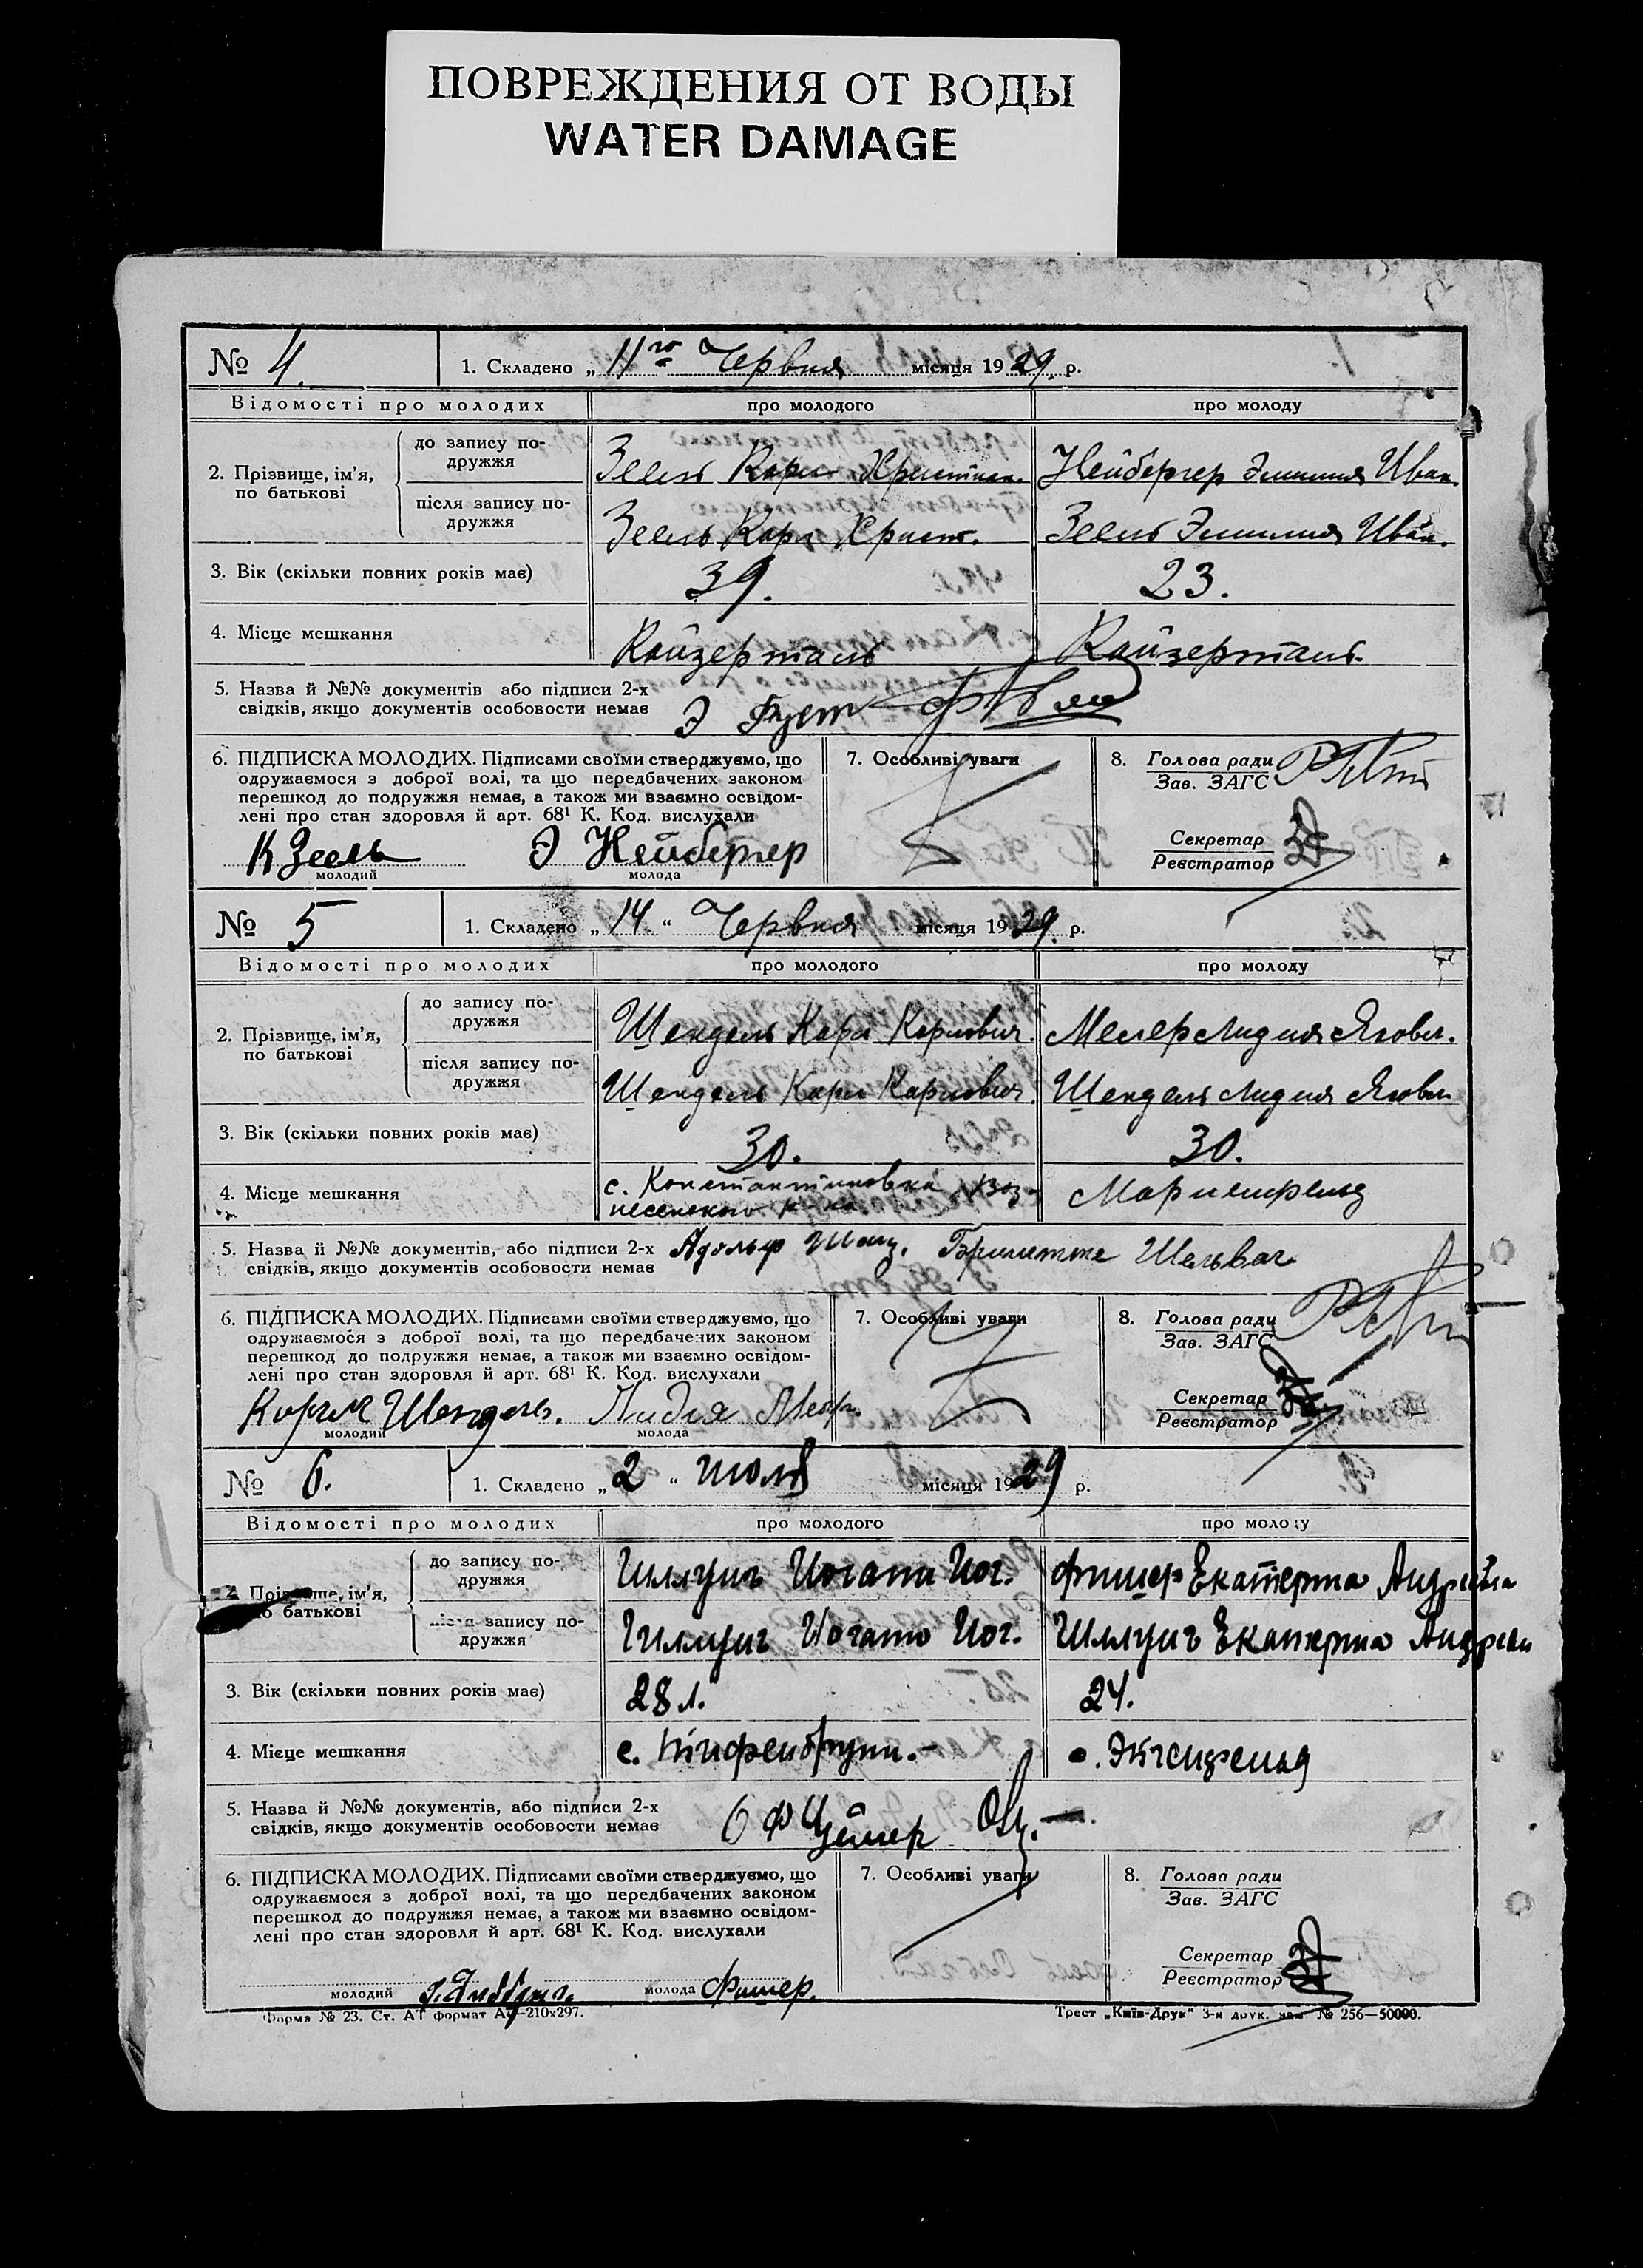 ПОВРЕЖДЕНИЯ ОТ ВОДЫ
WATER DAMAGE
№ 4. 1. Складено „ 11го Червня місяця 1929. р.
Відомості про молодих про молодого про молоду
2. Прізвище, ім’я, по батькові
до запису подружжя Зеель Карл Христиан. Нейбергер Эмилия Иван.
після запису подружжя Зеель Карл Христ. Зеель Эмилия Иван.
3. Вік (скільки повних років має) 39. 23.
4. Місце мешкання Кайзерталь Кайзерталь
5. Назва й №№ документів або підписи 2-х
свідків, якщо документів особовости немає Э
6. ПІДПИСКА МОЛОДИХ. Підписами своїми стверджуємо, що
одружаємося з доброї волі, та що передбачених законом
перешкод до подружжя немає, а також ми взаємно освідом-
лені про стан здоровля й арт. 68¹ К. Код. вислухали
К Зеель Э Нейбергер
молодий молода
7. Особливі уваги
8. Голова ради
Зав. ЗАГС
Секретар
Реєстратор
№ 5 1. Складено „ 14 “ Червня місяця 1929. р.
Відомості про молодих про молодого про молоду
2. Прізвище, ім’я, по батькові
до запису подружжя Шендель Карл Карлович. Мелер Лидия Яковл.
після запису подружжя Шендель Карл Карлович. Шендель Лидия Яковл.
3. Вік (скільки повних років має) 30. 30.
4. Місце мешкання с. Константиновка, Воз- Мариенфельд
несенского р-на
5. Назва й №№ документів, або підписи 2-х Адольф
свідків, якщо документів особовости немає
6. ПІДПИСКА МОЛОДИХ. Підписами своїми стверджуємо, що
одружаємося з доброї волі, та що передбачених законом
перешкод до подружжя немає, а також ми взаємно освідом-
лені про стан здоровля й арт. 68¹ К. Код. вислухали
Шендель. Лидия
молодий молода
7. Особливі уваги
8. Голова ради
Зав. ЗАГС
Секретар
Реєстратор
№ 6. 1. Складено „ 2 “ июля місяця 1929 р.
Відомості про молодих про молодого про молоду
2. Прізвище, ім’я, по батькові
до запису подружжя Иог. Фишер Екатерина
після запису подружжя Иог. Екатерина
3. Вік (скільки повних років має) 28 л. 24.
4. Місце мешкання с. Тифенбрунн.
5. Назва й №№ документів, або підписи 2-х
свідків, якщо документів особовости немає
6. ПІДПИСКА МОЛОДИХ. Підписами своїми стверджуємо, що
одружаємося з доброї волі, та що передбачених законом
перешкод до подружжя немає, а також ми взаємно освідом-
лені про стан здоровля й арт. 68¹ К. Код. вислухали
молодий молода Фишер.
7. Особливі уваги
8. Голова ради
Зав. ЗАГС
Секретар
Реєстратор
Форма № 23. Ст. АТ формат А4—210х297. Трест „Київ-Друк“ 3-я друк. зам. № 256—50000.